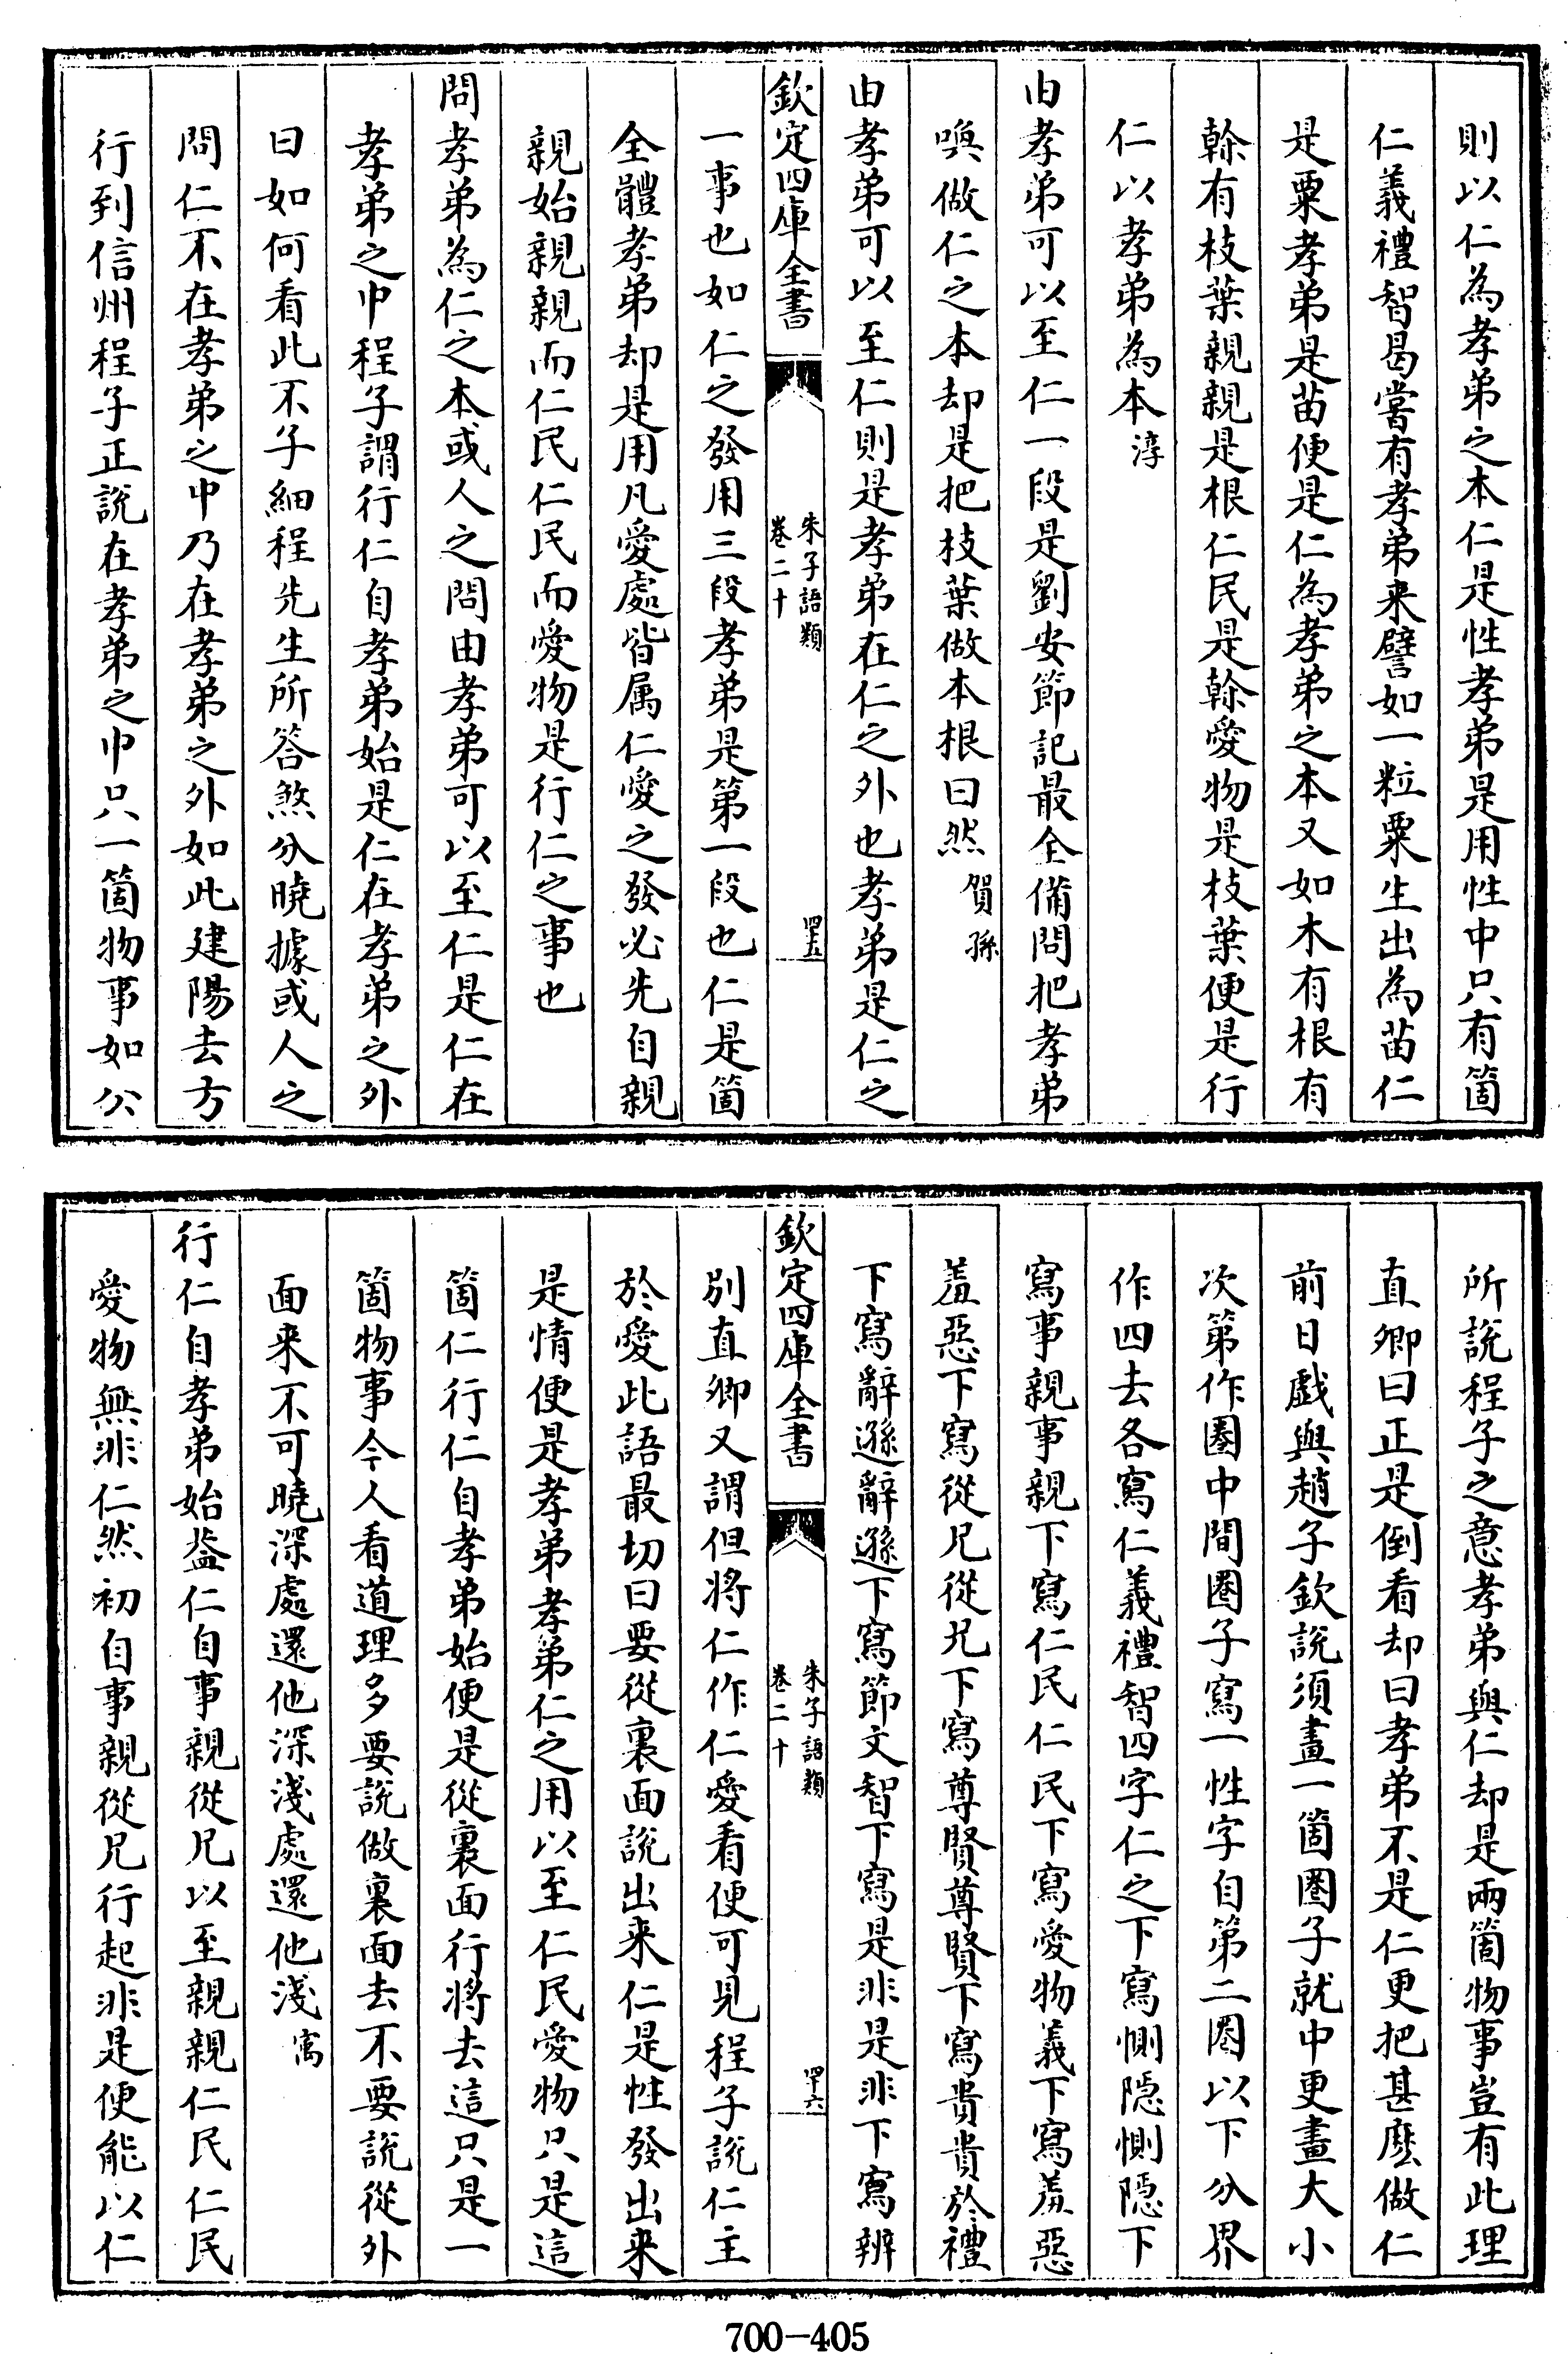 則以仁為孝弟之本仁是性孝弟是用性中只有箇
仁義禮智曷嘗有孝弟来譬如一粒粟生出為苗仁
是粟孝弟是苗便是仁為孝弟之本又如木有根有
榦有枝葉親親是根仁民是榦愛物是枝葉便是行
仁以孝弟為本淳
由孝弟可以至仁一段是劉安節記最全備問把孝弟
喚做仁之本却是把枝葉做本根曰然賀孫
由孝弟可以至仁則是孝弟在仁之外也孝弟是仁之
欽定四庫全書
朱子語類
卷二十
四五
一事也如仁之發用三段孝弟是第一段也仁是箇
全體孝弟却是用凡愛處皆属仁愛之發必先自親
親始親親而仁民仁民而愛物是行仁之事也
問孝弟為仁之本或人之問由孝弟可以至仁是仁在
孝弟之中程子謂行仁自孝弟始是仁在孝弟之外
曰如何看此不子細程先生所答煞分曉據或人之
問仁不在孝弟之中乃在孝弟之外如此建陽去方
行到信州程子正說在孝弟之中只一箇物事如公
所說程子之意孝弟與仁却是兩箇物事豈有此理
直卿曰正是倒看却曰孝弟不是仁更把甚麽做仁
前日戲與趙子欽說須畫一箇圈子就中更畫大小
次第作圈中間圈子寫一性字自第二圈以下分界
作四去各寫仁義禮智四字仁之下寫惻隠惻隠下
寫事親事親下寫仁民仁民下寫愛物義下寫羞惡
羞惡下寫從兄從兄下寫尊賢尊賢下寫貴貴於禮
下寫辭遜辭遜下寫節文智下寫是非是非下寫辨
欽定四庫全書
朱子語類
卷二十
四六
别直卿又謂但將仁作仁愛看便可見程子說仁主
於愛此語最切曰要從裏面說出来仁是性發出来
是情便是孝弟孝弟仁之用以至仁民愛物只是這
箇仁行仁自孝弟始便是從裏面行將去這只是一
箇物事今人看道理多要說做裏面去不要說從外
面来不可曉深處還他深淺處還他淺㝢
行仁自孝弟始葢仁自事親從兄以至親親仁民仁民
愛物無非仁然初自事親從兄行起非是便能以仁
700-405